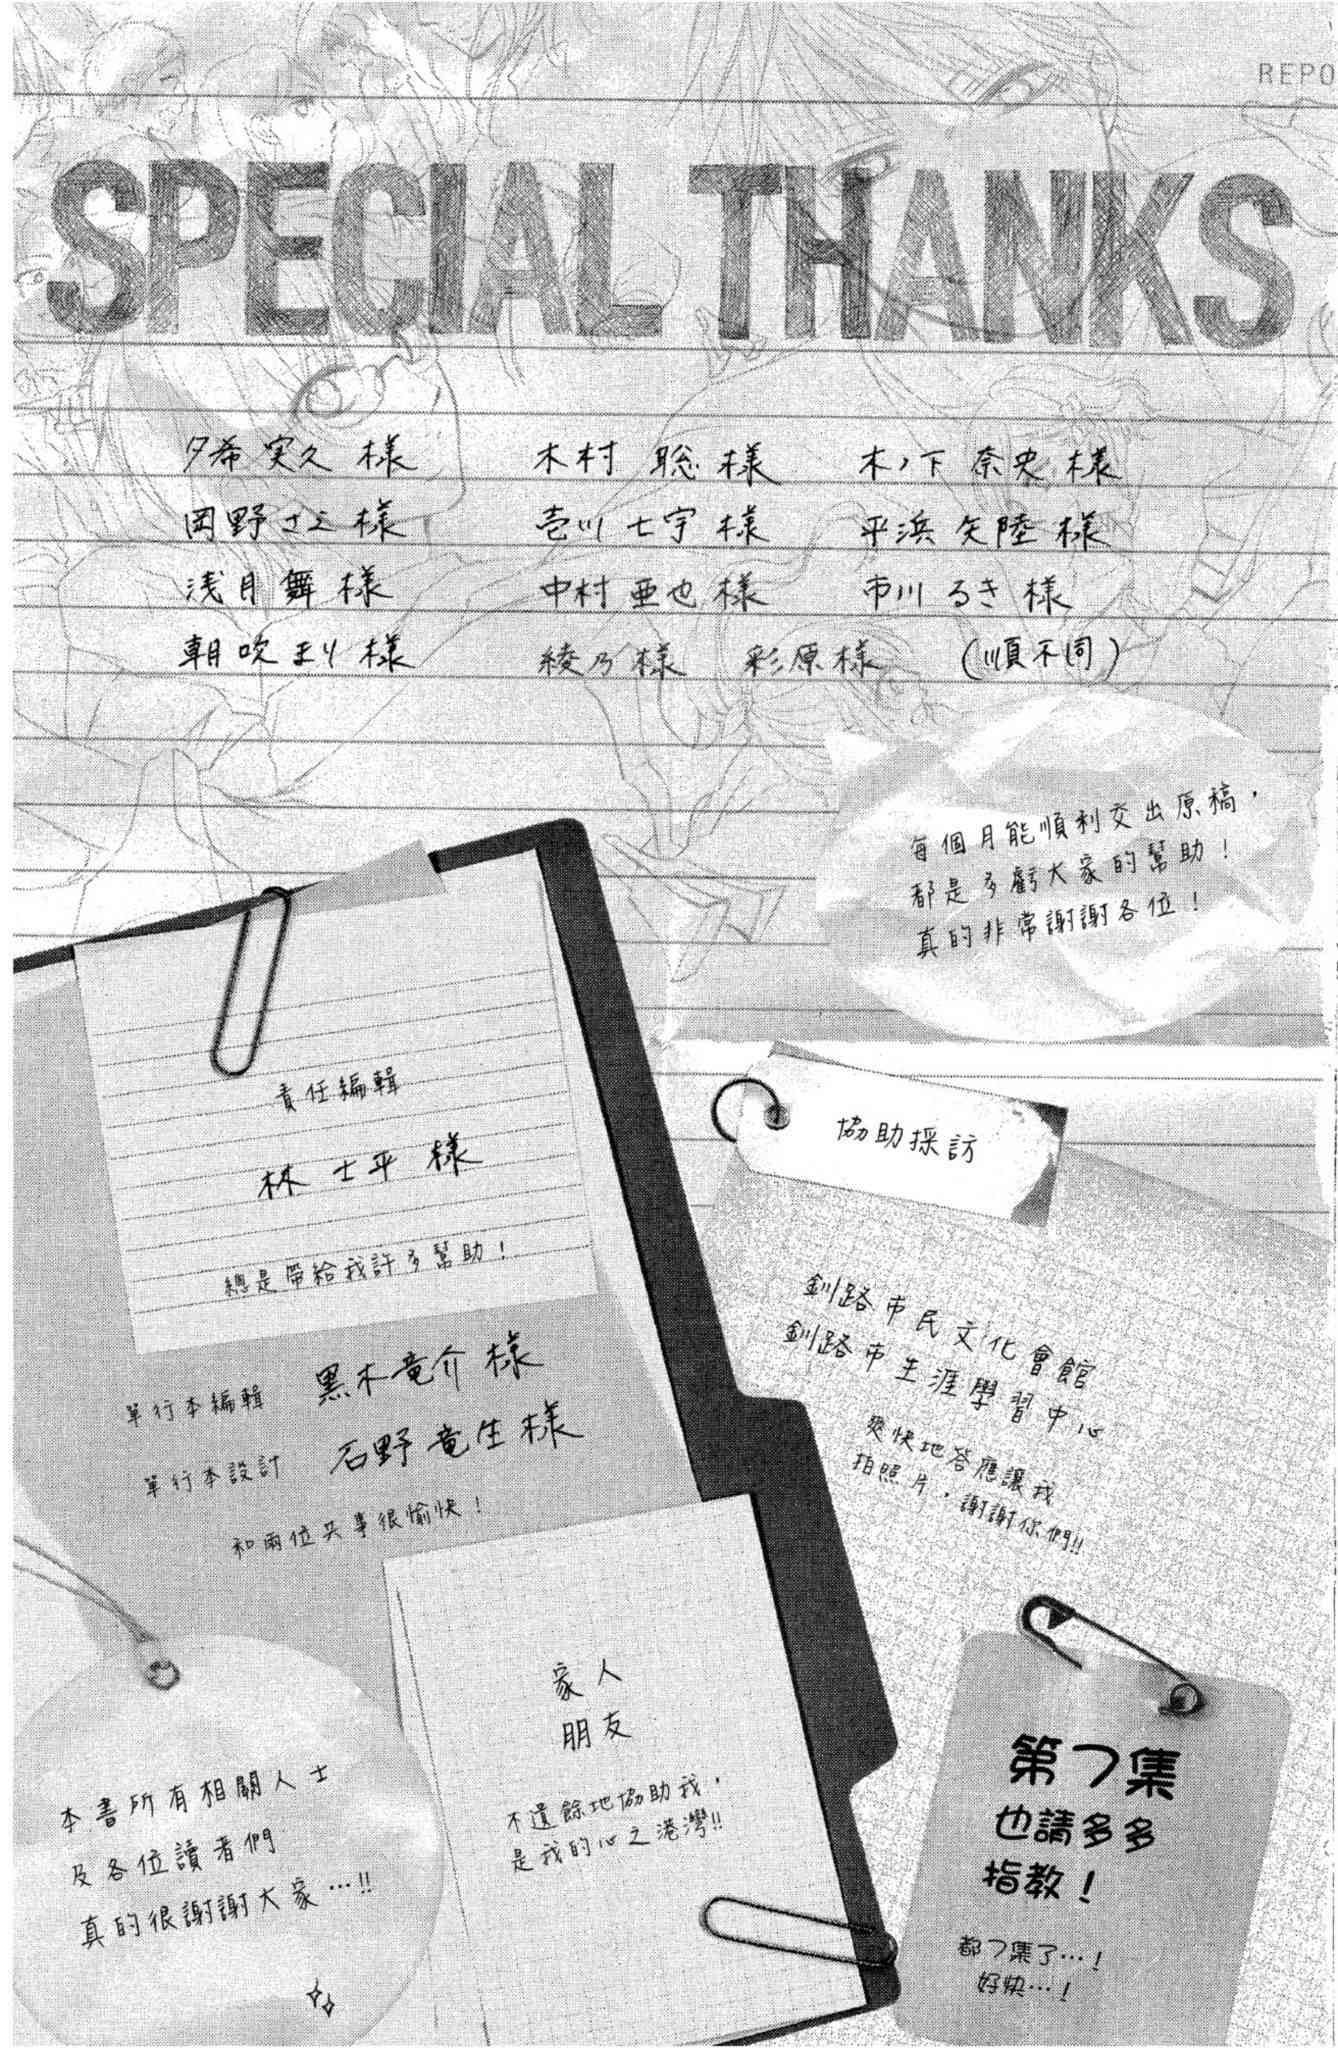 REPO
SPECIAL THANKS
夕希 実久 様　木村 聡 様　木ノ下 奈央 様
岡野 さえ 様　壱川 七宇 様　平浜 矢陸 様
浅月 舞 様　中村 亜也 様　市川 るき 様
朝吹 まり 様　綾乃 様　彩原 様　(順不同)
每個月能順利交出原稿，
都是多虧大家的幫助！
真的非常謝謝各位！
責任編輯
林 士平 様
總是帶給我許多幫助！
單行本編輯　黒木竜介 様
單行本設計　石野竜生 様
和兩位共事很愉快！
協助採訪
釧路市民文化會館
釧路市生涯學習中心
爽快地答應讓我
拍照片，謝謝你們!!
家人
朋友
不遺餘地協助我，
是我的心之港灣!!
本書所有相關人士
及各位讀者們
真的很謝謝大家…!!
第7集
也請多多
指教！
都7集了…！
好快…！